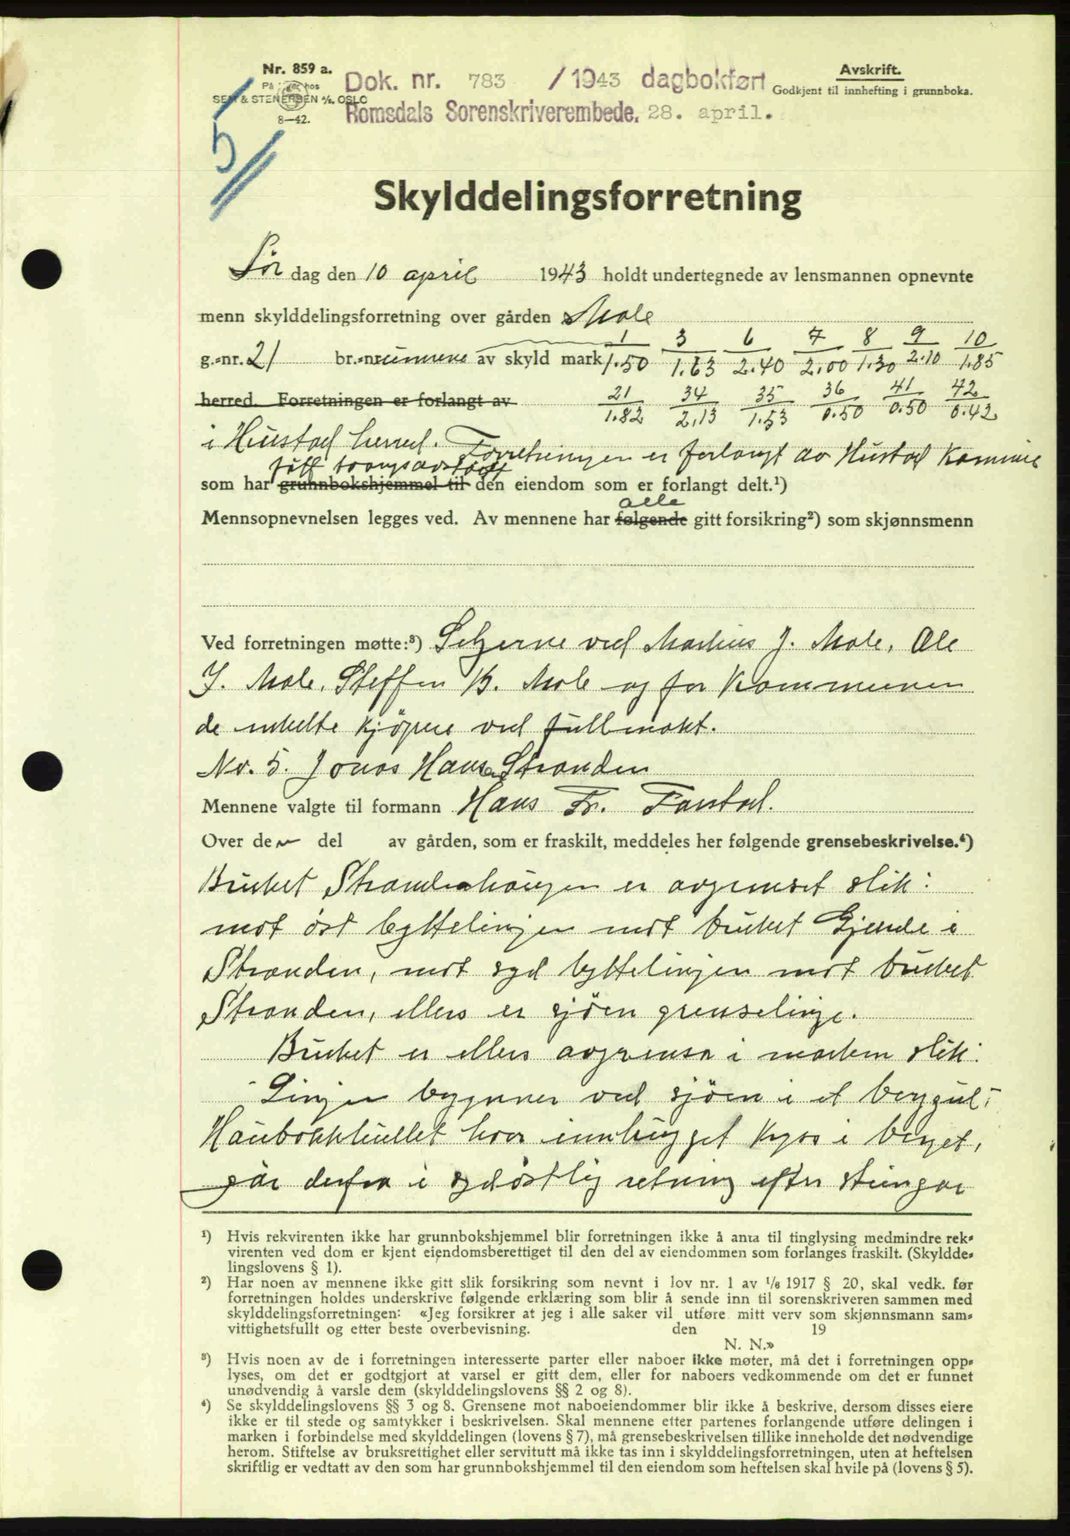 Nr. 859 a.
På lager hos
SEM & STENERSEN A/S, OSLO
8—42.
Dok. nr. 783 /1943 dagbokført
Romsdals Sorenskriverembede. 28. april.
Avskrift.
Godkjent til innhefting i grunnboka.
5
Skylddelingsforretning
Lør dag den 10 april 1943 holdt undertegnede av lensmannen opnevnte
menn skylddelingsforretning over gården Male
g.-nr. 21 br.-numrene av skyld mark 1/1.50 3/1.63 6/2.40 7/2.00 8/1.30 9/2.10 10/1.85
herred. Forretningen er forlangt av 21/1.82 34/2,13 35/1.53 36/0.50 41/0.50 42/0.42
i Hustad herred. Forretningen er forlangt av Hustad Kommune
fått tvangsavstått
som har grunnbokshjemmel til den eiendom som er forlangt delt.¹)
alle
Mennsopnevnelsen legges ved. Av mennene har følgende gitt forsikring²) som skjønnsmenn
Ved forretningen møtte:³) Selgerne ved Markus J. Male, Ole
J. Male, Steffen K. Male og for Kommunen
de enkelte kjøpere ved fullmakt.
Nr. 5. Jonas Hansen Stranden
Mennene valgte til formann Hans Fr. Farstad.
Over den del av gården, som er fraskilt, meddeles her følgende grensebeskrivelse.⁴)
Bruket Strandenhaugen er avgrenset slik:
mot øst byttelinjen mot bruket Gjende i
Stranden, mot syd byttelinjen mot bruket
Stranden, ellers er sjøen grenselinje.
Bruket er ellers avgrensa i marken slik:
Linjen begynner ved sjøen i et berg ved
Haubokkhullet hvor innhugget kors i berget,
går derfra i sydøstlig retning efter steingar
¹) Hvis rekvirenten ikke har grunnbokshjemmel blir forretningen ikke å anta til tinglysing medmindre rek-
virenten ved dom er kjent eiendomsberettiget til den del av eiendommen som forlanges fraskilt. (Skyldde-
lingslovens § 1).
²) Har noen av mennene ikke gitt slik forsikring som nevnt i lov nr. 1 av 1/6 1917 § 20, skal vedk. før
forretningen holdes underskrive følgende erklæring som blir å sende inn til sorenskriveren sammen med
skylddelingsforretningen: «Jeg forsikrer at jeg i alle saker vil utføre mitt verv som skjønnsmann sam-
vittighetsfullt og etter beste overbevisning. den 19
N. N.»
³) Hvis noen av de i forretningen interesserte parter eller naboer ikke møter, må det i forretningen opp-
lyses, om det er godtgjort at varsel er gitt dem, eller for naboers vedkommende om det er funnet
unødvendig å varsle dem (skylddelingslovens §§ 2 og 8).
⁴) Se skylddelingslovens §§ 3 og 8. Grensene mot naboeiendommer blir ikke å beskrive, dersom disses eiere
ikke er til stede og samtykker i beskrivelsen. Skal mennene etter partenes forlangende utføre delingen i
marken i forbindelse med skylddelingen (lovens § 7), må grensebeskrivelsen tillike inneholde det nødvendige
herom. Stiftelse av bruksrettighet eller servitutt må ikke tas inn i skylddelingsforretningen, uten at heftelsen
skriftlig er vedtatt av den som har grunnbokshjemmel til den eiendom som heftelsen skal hvile på (lovens § 5).